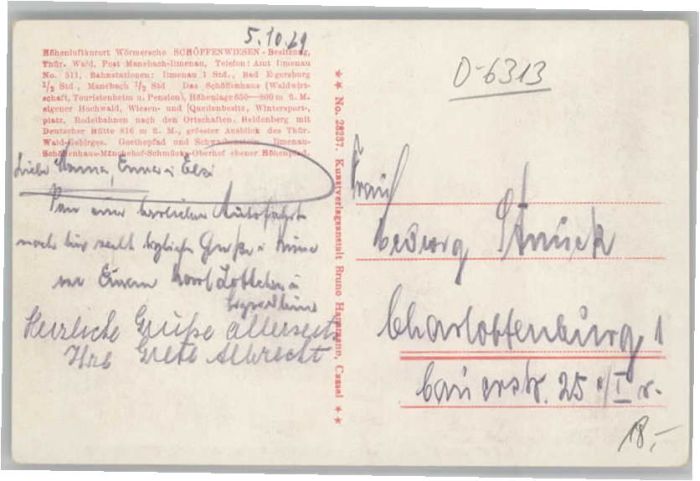 5.10.29
Höhenluftkurort Wörmersche SCHÖFFENWIESEN-Besitzung,
Thür. Wald, Post Manebach-Ilmenau, Telefon: Amt Ilmenau
No. 511, Bahnstationen: Ilmenau 1 Std., Bad Elgersburg
1/2 Std., Manebach 1/2 Std Das Schöffenhaus (Waldwirt-
schaft, Touristenheim u. Pension), Höhenlage 650—800 m ü. M.
eigener Hochwald, Wiesen- und Quellenbesitz, Wintersport-
platz, Rodelbahnen nach den Ortschaften. Heldenberg mit
Deutscher Hütte 816 m ü. M., grösster Ausblick des Thür.
Wald-Gebirges. Goethepfad und Schwabenstein Ilmenau-
Schöffenhaus-Mönchshof-Schmücke-Oberhof ebener Höhenpfad.
Liebe Hanna, Erna u Else
Von einer herrlichen Autofahrt
noch hier recht herzliche Grüße
Herzliche Grüße allerseits
Ihre Grete Albrecht
** No. 28237. Kunstverlagsanstalt Bruno Hansmann, Cassel **
D-6313
Frau
Georg Struck
Charlottenburg 1
25 I r.
18,-